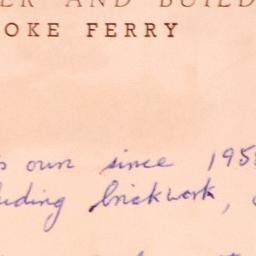 ER AND BUILD
OKE FERRY
own since 195
uding brickwork,